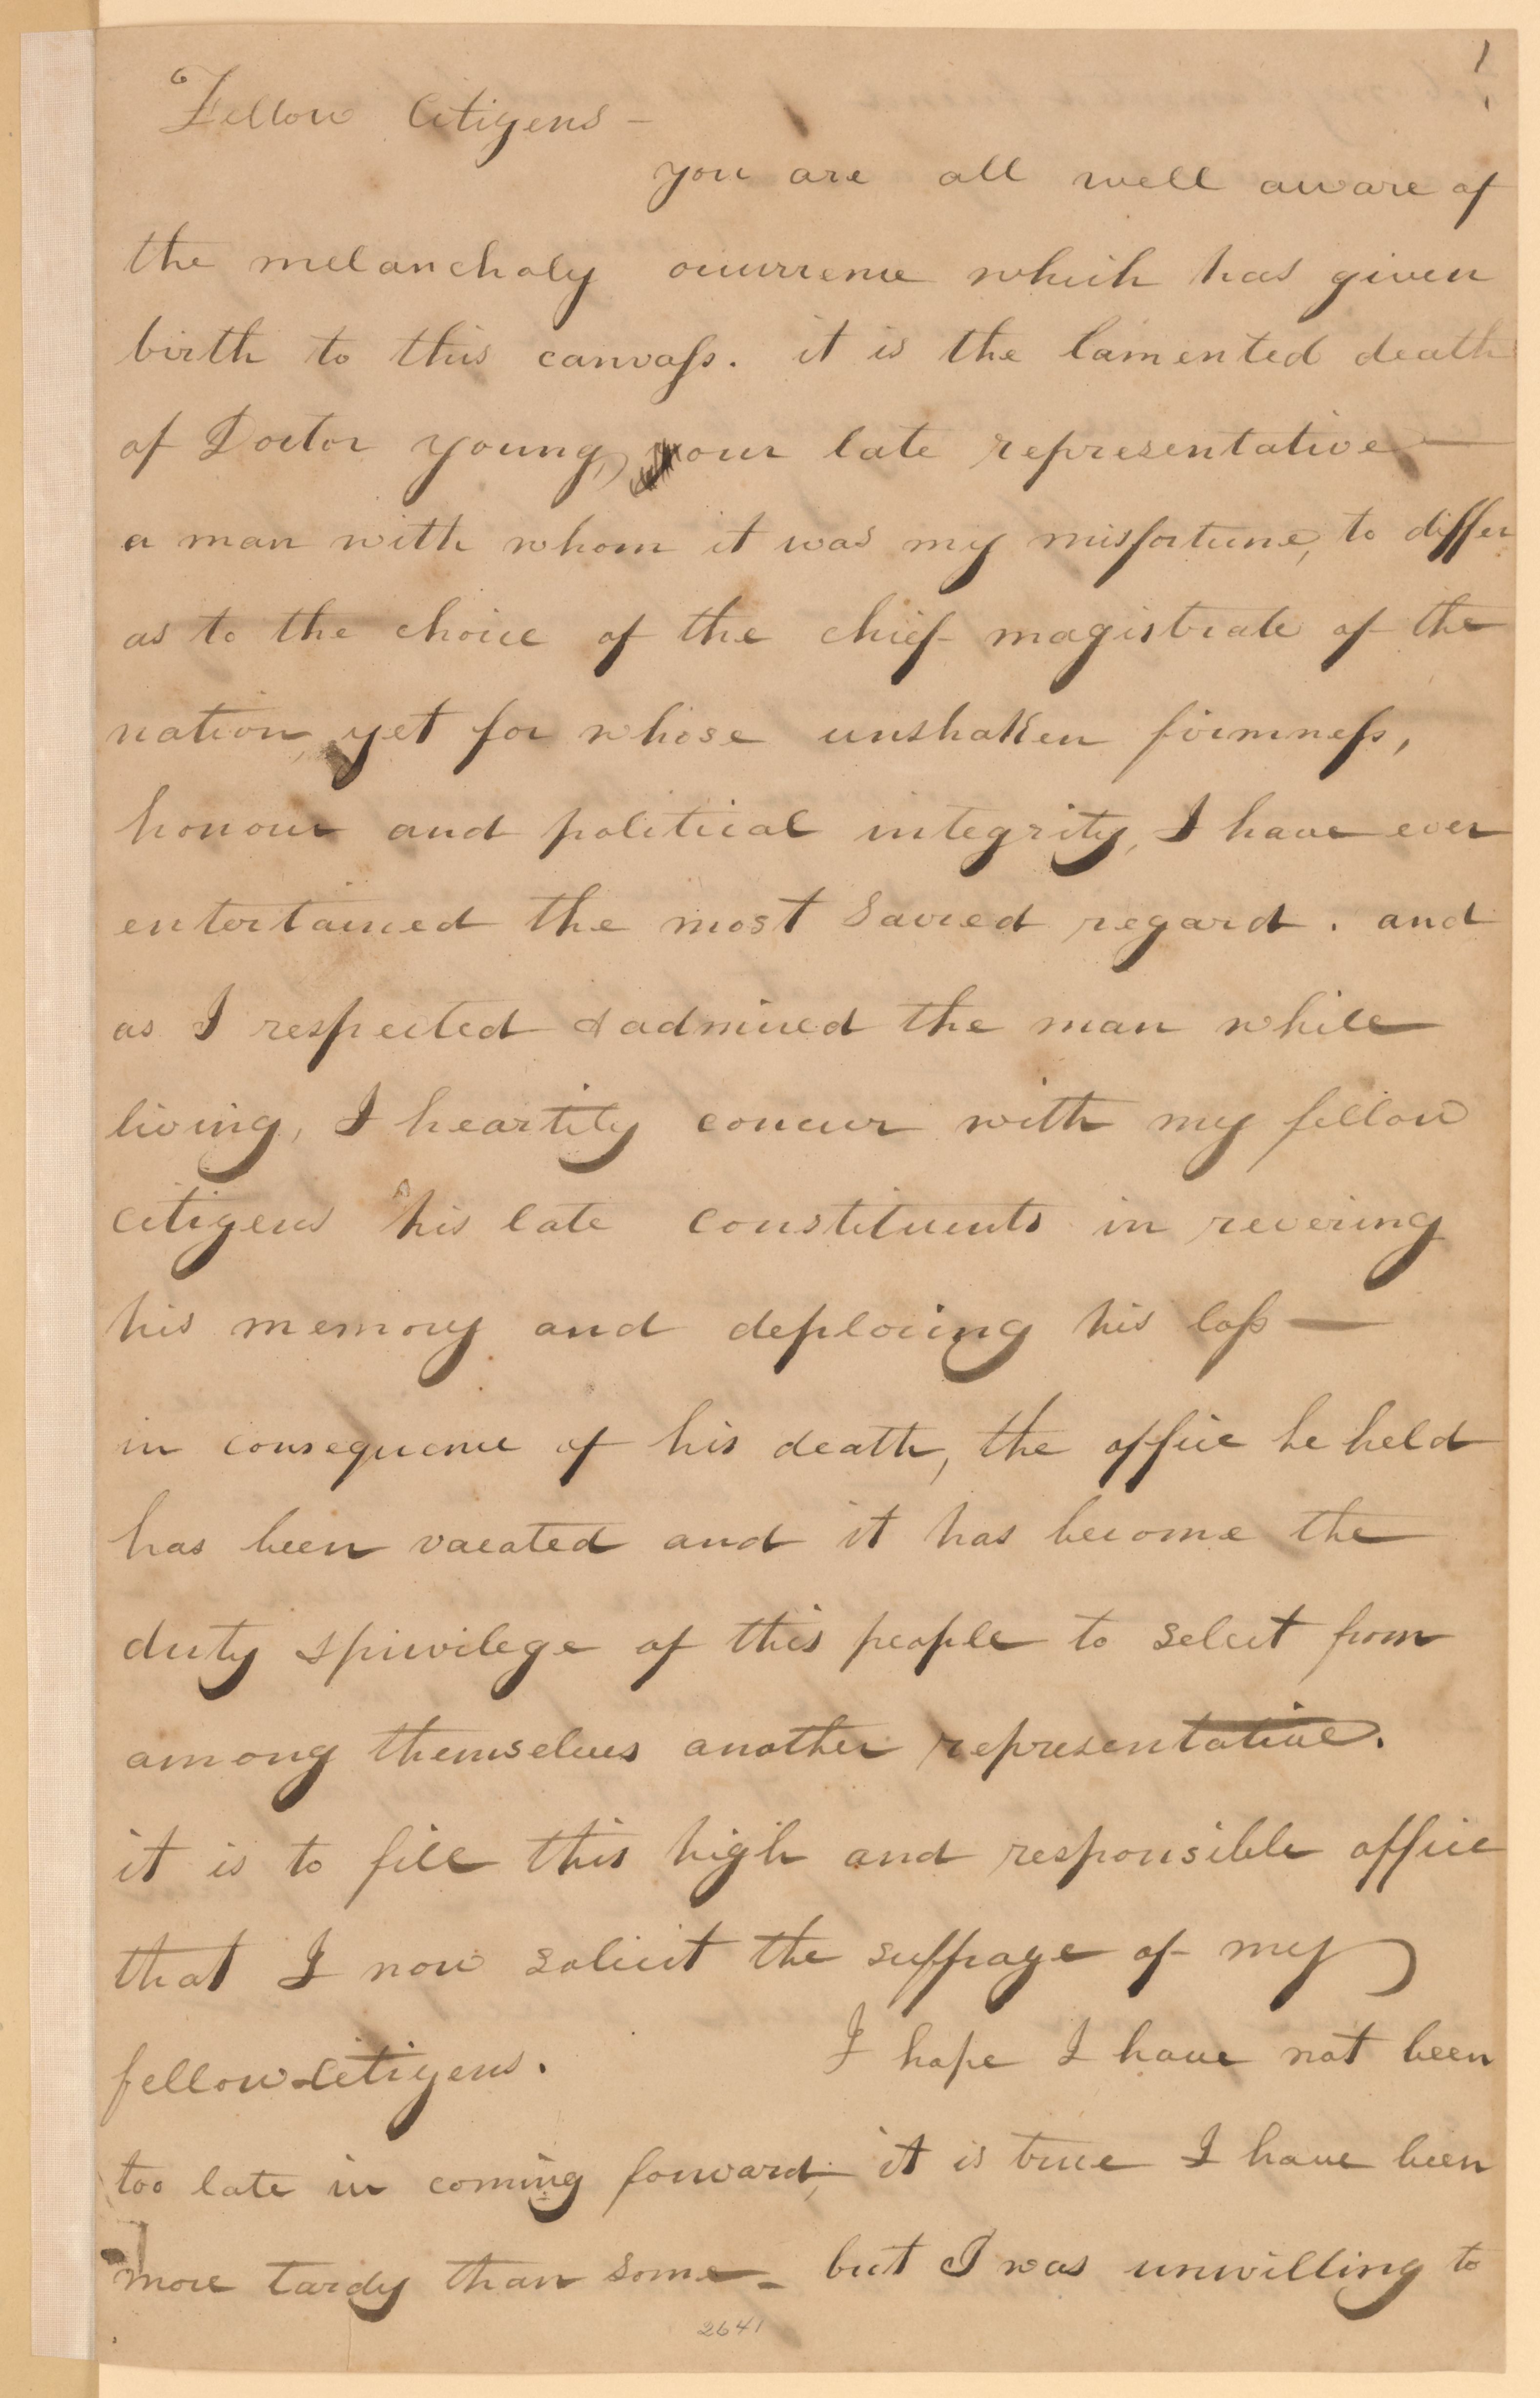 1
Fellow Citizens –
you are all well aware of
the melancholy occurrence which has given
birth to this canvass. it is the lamented death
of Doctor young, our late representative —
a man with whom it was my misfortune, to differ
as to the choice of the chief magistrate of the
nation, yet for whose unshaken firmness,
honour and political integrity, I have ever
entertained the most sacred regard. and
as I respected & admired the man while
living, I heartily concur with my fellow
citizens his late constituents in revering
his memory and deploring his loss —
in consequence of his death, the office he held
has been vacated and it has become the
duty & privilege of this people to select from
among themselves another representative.
it is to fill this high and responsible office
that I now solicit the suffrage of my
fellow-citizens. I hope I have not been
too late in coming forward, it is true I have been
more tardy than some – but I was unwilling to
2641